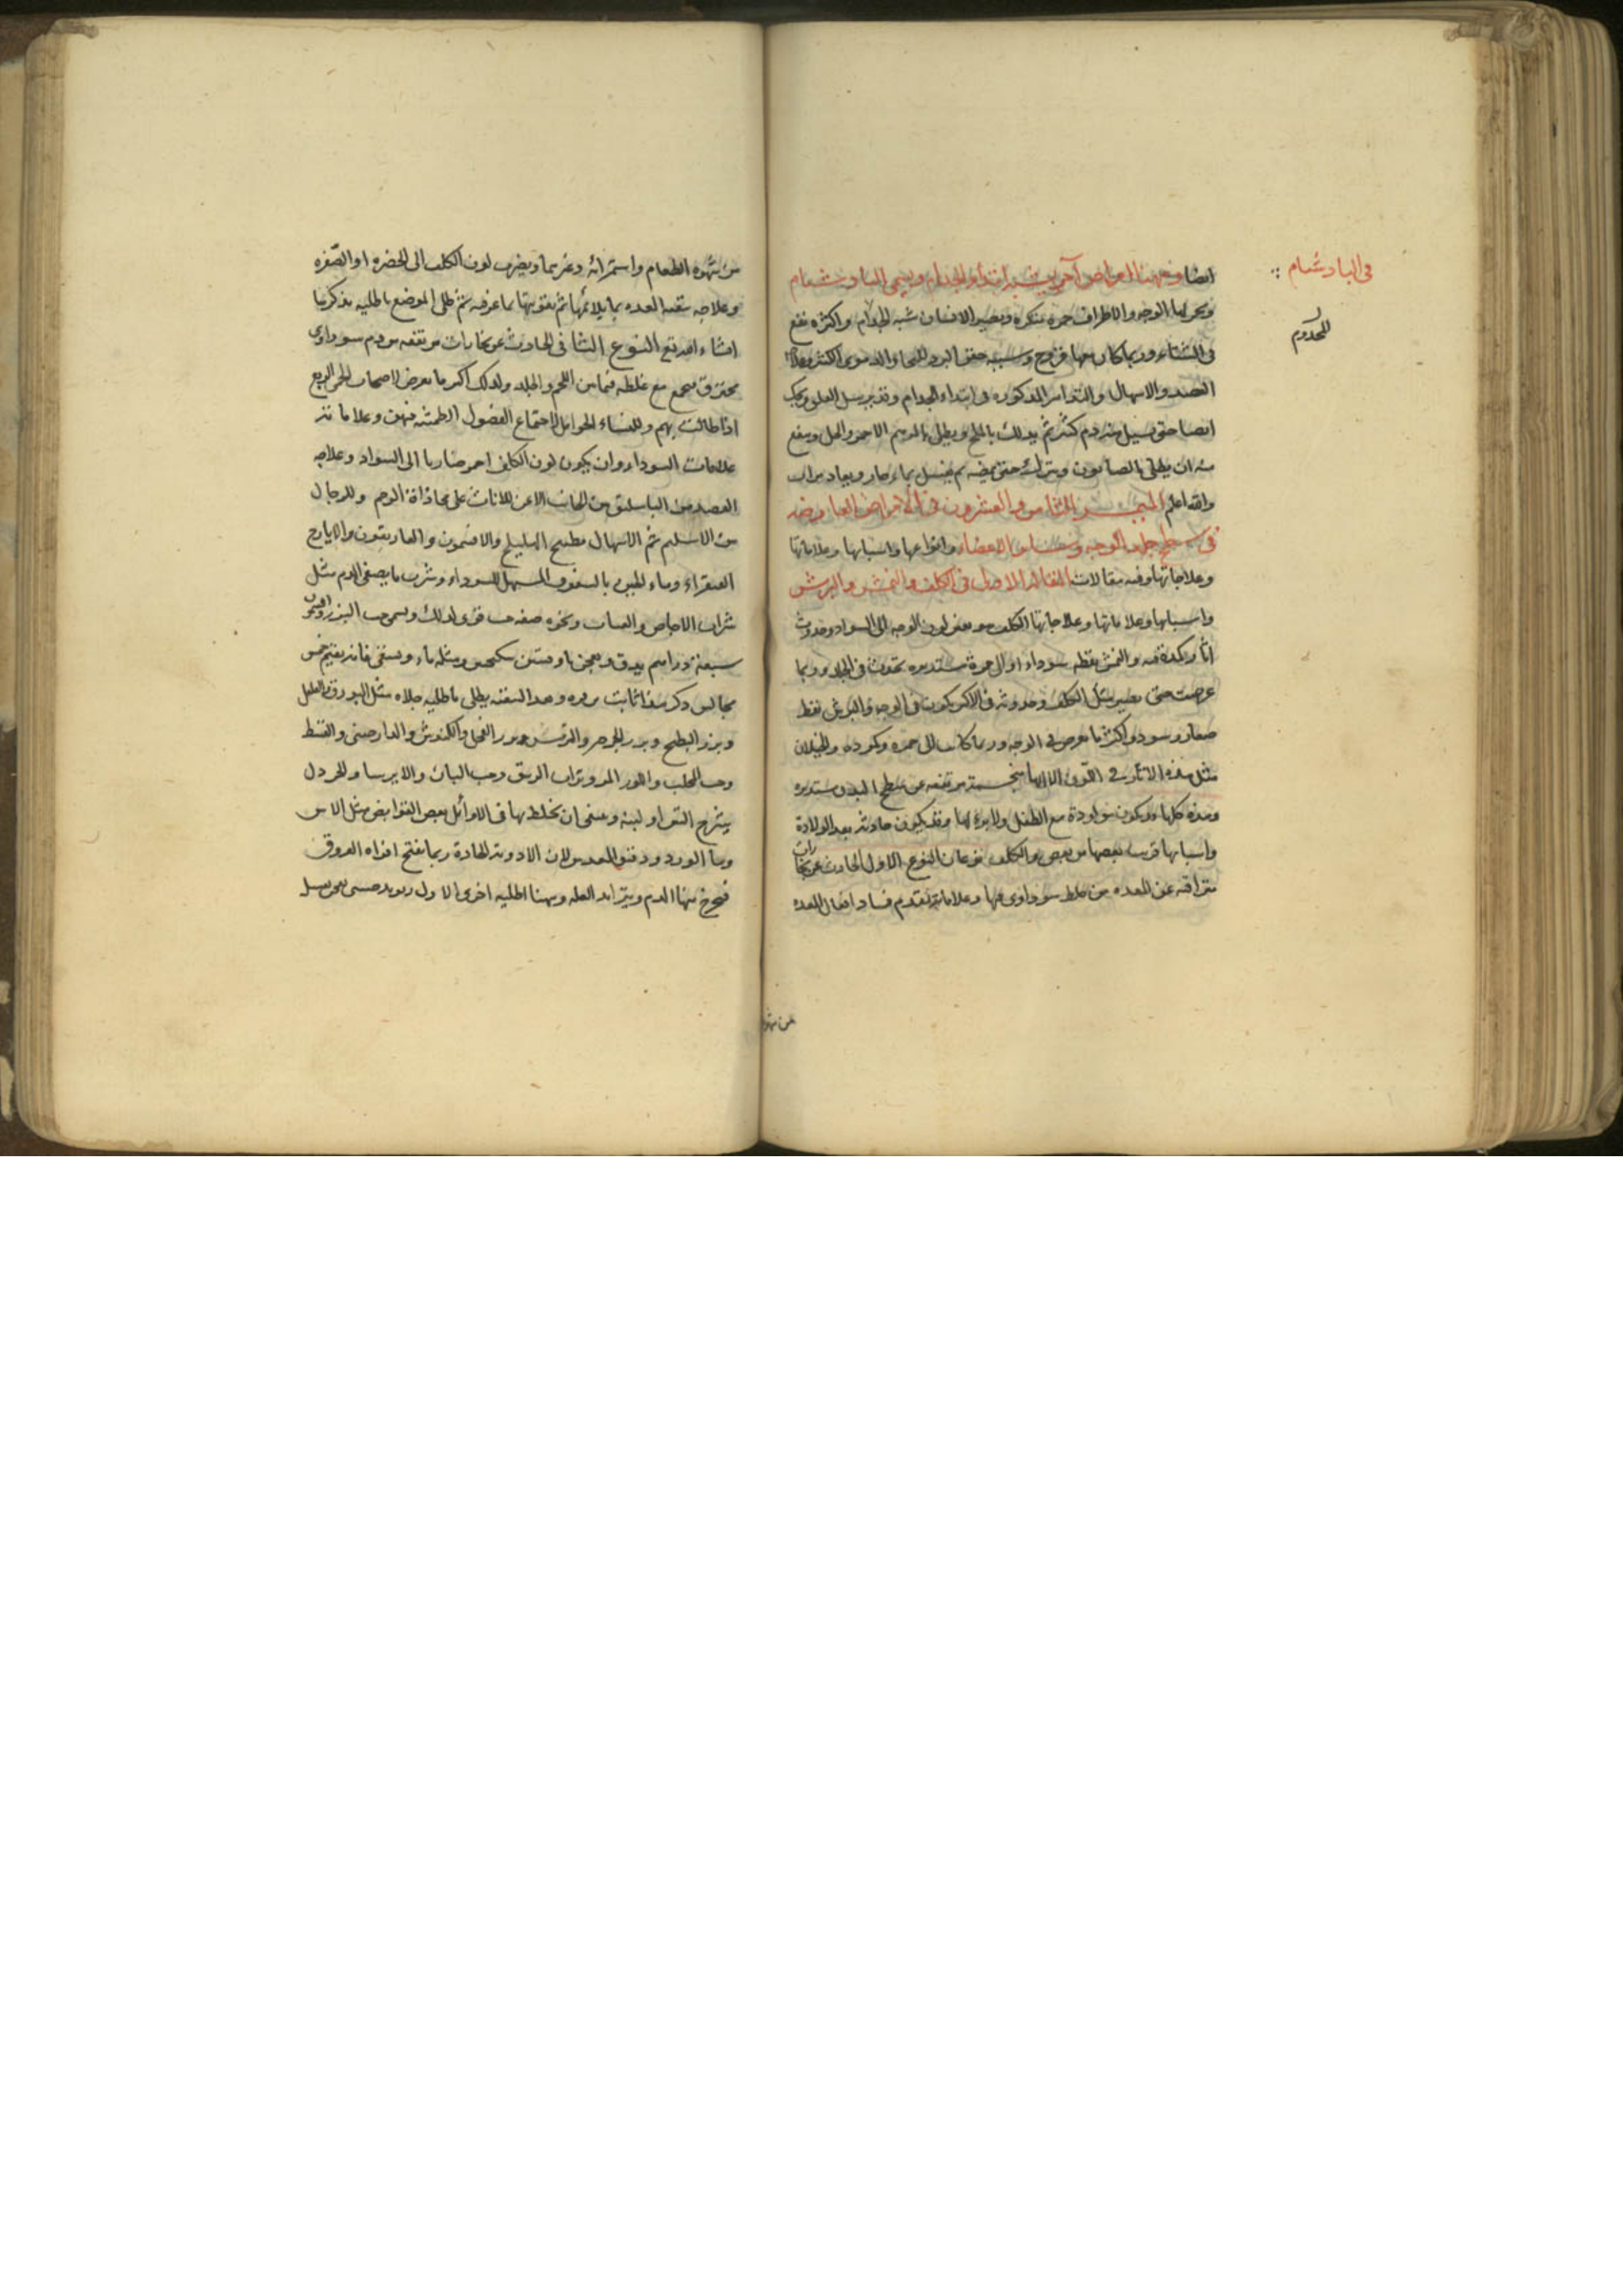 في البادشنام
للمجذوم
ايضا وههنا امراض آخر يشبه ابتداء الجذام ويسمى البادشنام
ويحمر لها الوجه والاطراف حمرة منكرة ويصير الانسان شبه المجذوم واكثره يقع
في الشتاء وربما كان معها قروح وسببه حقن البرد للبخار الدموى الكثير وعلاجه
الفصد والاسهال والتدابير المذكورة فى ابتداء الجذام وقد يرسل العلق ويحك
ايضا حتى يسيل منه دم كثير ثم يدلك بالملح ويطلى بالمرهم الاحمر والخل وينفع
منه ان يطلى بالصابون ويترك حتى يمضه ثم يغسل بماء حار ويعاد مرات
والله اعلم المبحث الثامن والعشرون فى الامراض العارضة
فى سطح جلد الوجه وسائر الاعضاء وانواعها واسبابها وعلاماتها
وعلاجاتها وفيه مقالات المقالة الاولى فى الكلف والنمش والبرش
واسبابها وعلاماتها وعلاجاتها الكلف هو تغير لون الوجه الى السواد وحدوث
آثار كمدة فيه والنمش نقطه سوداء او الى حمرة مستديره تحدث فى الجلد وربما
عرضت حتى يصير مثل الكلف وحدوثه فى الاكثر يكون فى الوجه والبرش نقط
صغار سود واكثر ما تعرض فى الوجه وربما كانت الى حمره وكموده والخيلان
مثل هذه الاثار فى اللون الا انها متجسمة مرتفعه عن سطح البدن مستديره
وهذه كلها قد يكون مولودة مع الطفل ولا برء لها وقد يكون حادثه بعد الولادة
واسبابها قريب بعضها من بعض والكلف نوعان النوع الاول الحادث عن بخارات
متراقيه عن المعده من خلط سوداوى فيها وعلاماته تقدم فساد افعال المعده
من شهو
من شهوه الطعام واستمرائه وغيرهما ويضرب لون الكلف الى الخضره او الصفره
وعلاجه تنقيه المعده بما يلائمها ثم تقويتها بما عرفته ثم طلى الموضع باطليه نذكرها
انشاء الله تع النوع الثانى الحادث عن بخارات مرتفعه من دم سوداوى
محترق مجمع مع غلظه فيما بين اللحم والجلد ولذلك اكثر ما يعرض لاصحاب الحمى الربع
اذا طالت بهم وللنساء الحوامل لاحتماع الفضول الطمثيه فيهن وعلاماته
علامات السوداء وان يكون لون الكلف احمر ضاربا الى السواد وعلاجه
الفصد من الباسليق من الجانب الايمن للاناث على محاذاة الرحم وللرجال
من الاسليم ثم الاسهال بمطبوخ الهليلج والافتيمون والغاريقون والايارج
الفيقراء وماء الجبن بالسفوف المسهل للسوداء وشرب ما يصفى الدم مثل
شراب الاجاص والعناب ونحوه صفه حب قوى لذلك ويسمى حب البزر افتيمون
سبعة دراهم يدق ويعجن باوقيتين سكنجبين ومثله ماء ويسقى فانه يقيم خمس
مجالس ذكر هذا ثابت بن قره وبعد التنقيه يطلى باطليه جلاء مثل البورق والفلفل
وبزر البطيخ وبزر الجرجير والترمس وبزر الفجل والكندش والدارصينى والقسط
وحب المحلب واللوز المر وتراب الزيبق وحب البان والايرسا والخردل
يشرح التين او لبنه وينبغى ان يخلط بها فى الاوائل بعض القوابض مثل الاس
وماء الورد ودقيق العدس لان الادوية الحادة ربما تفتح افواه العروق
فيخرج منها الدم ويتزايد العله وههنا اطليه اخرى الاول